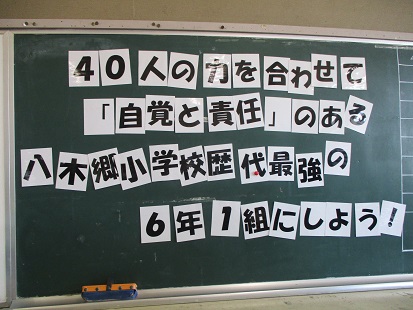 40人の力を合わせて
「自覚と責任」のある
八木郷小学校歴代最強の
6年1組にしよう!